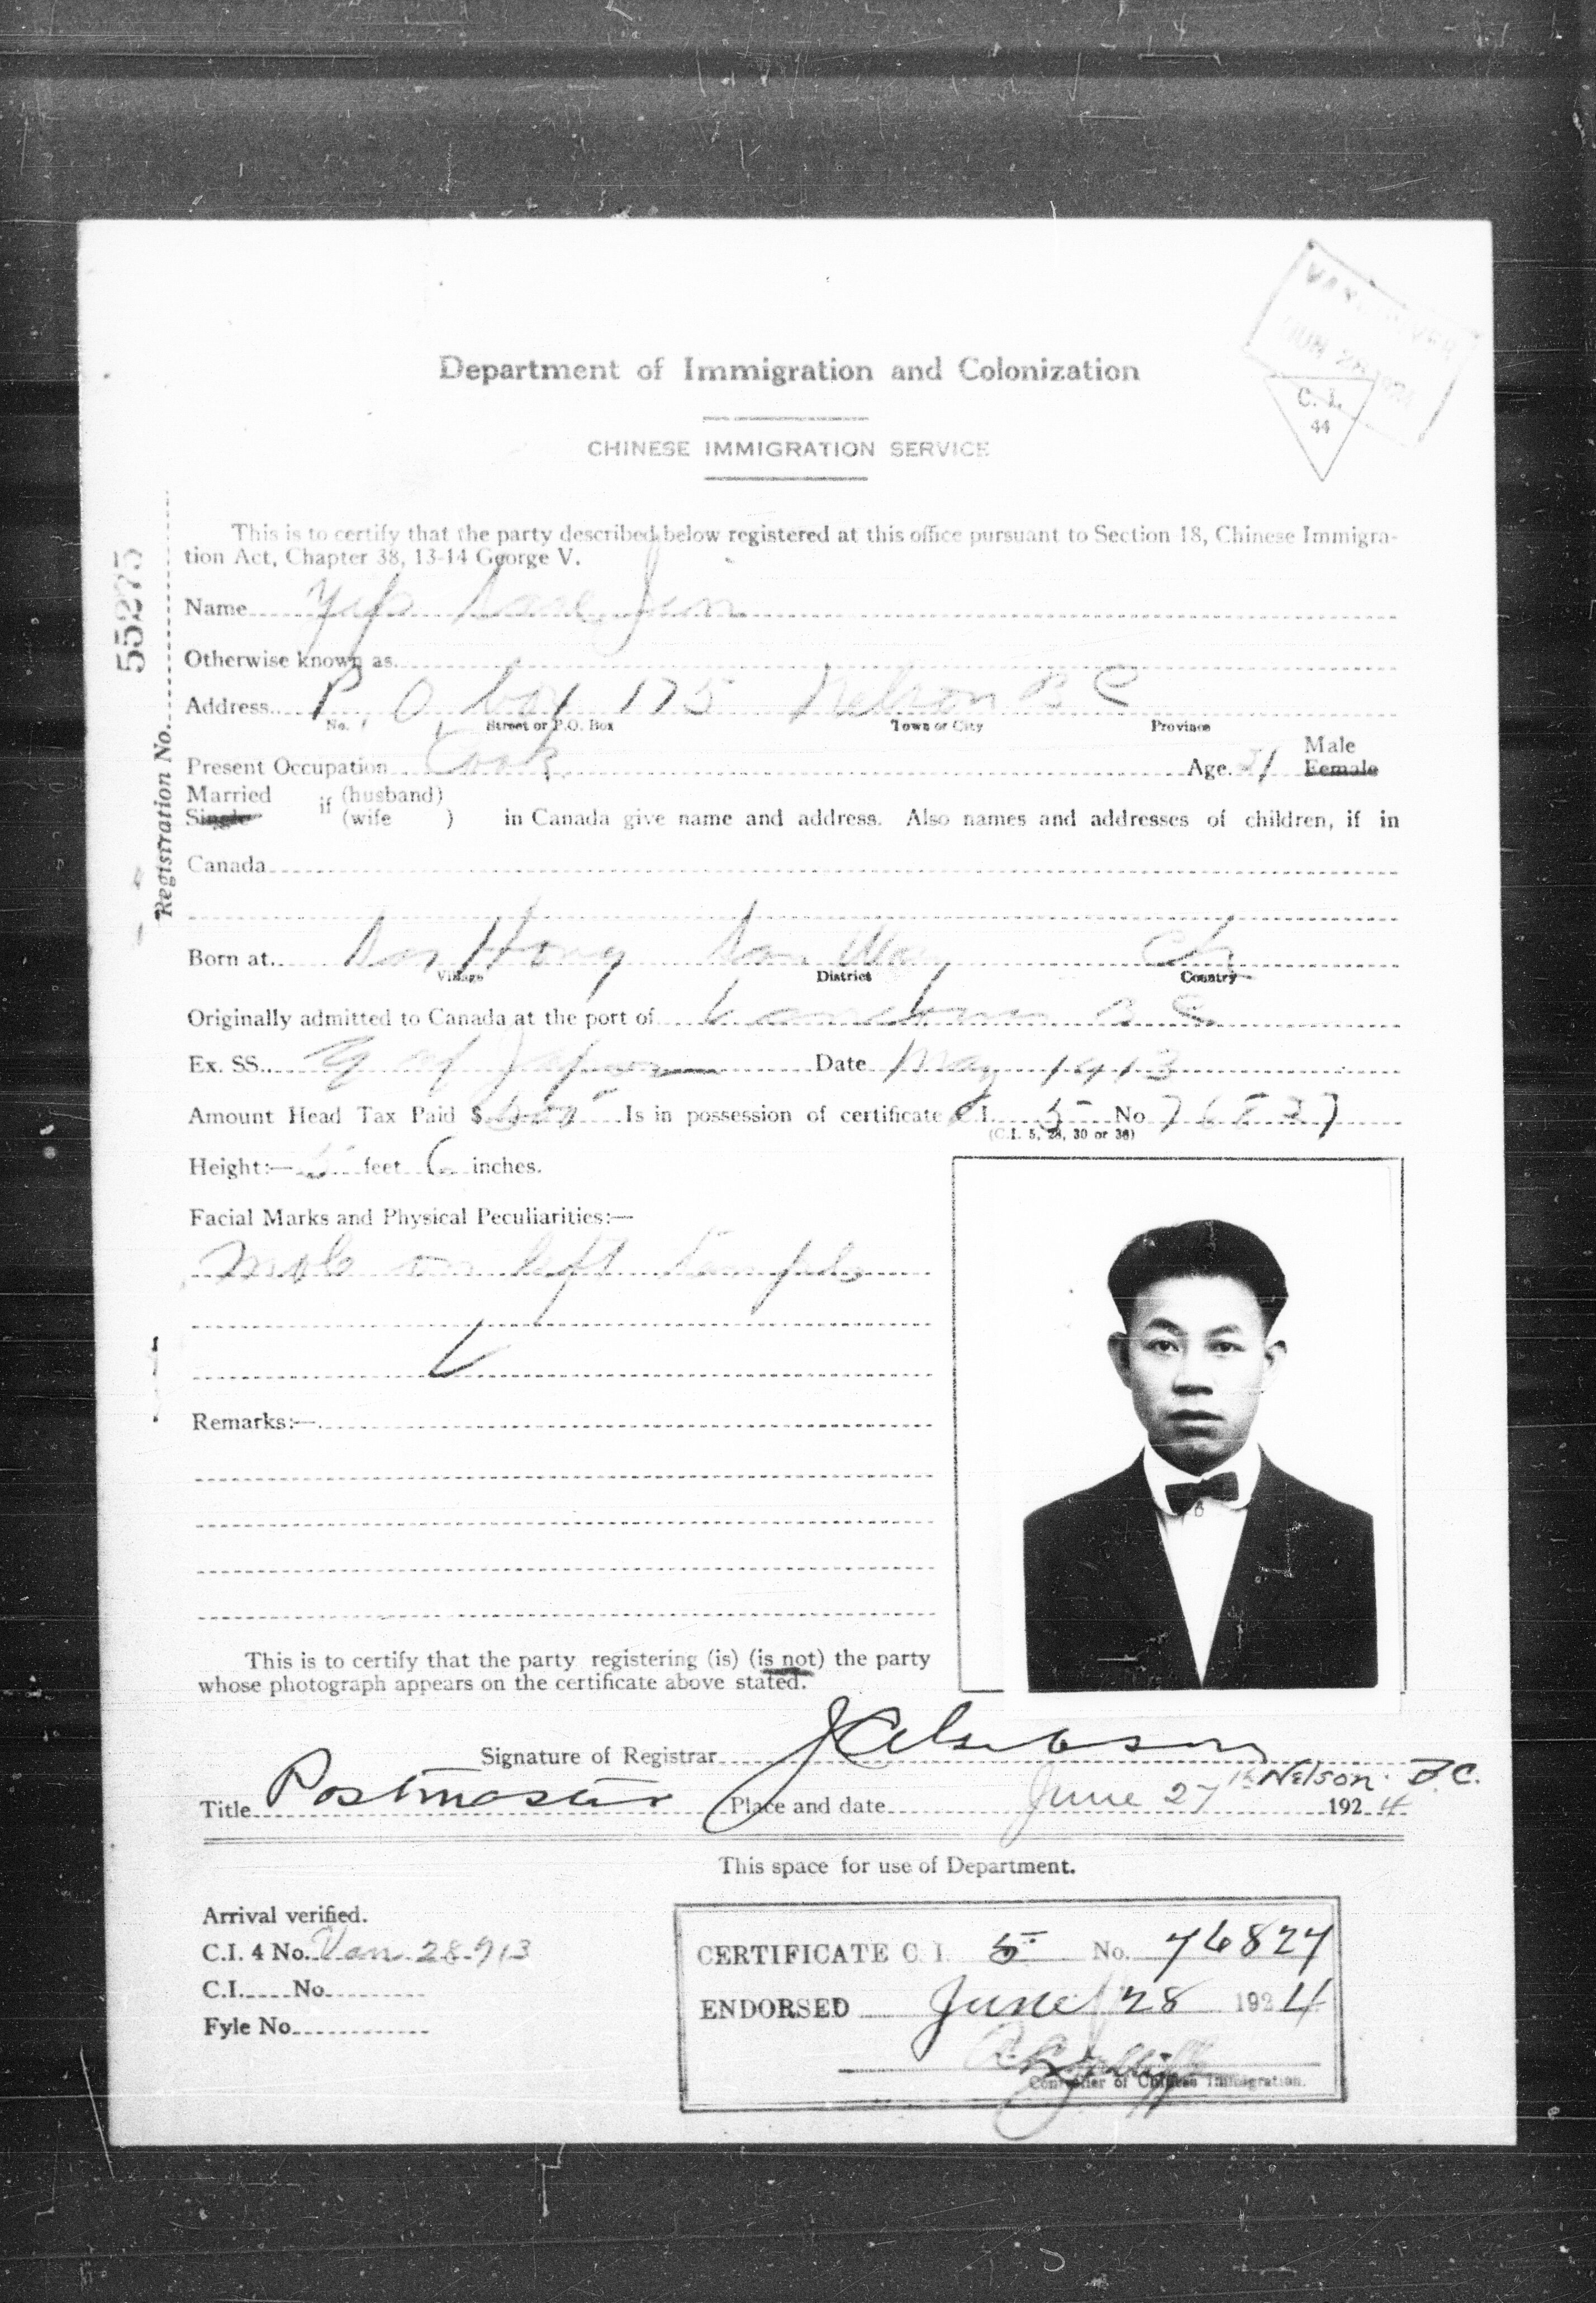 VANCOUVER
JUN 28 1924
C. I.
44
Department of Immigration and Colonization
CHINESE IMMIGRATION SERVICE
This is to certify that the party described below registered at this office pursuant to Section 18, Chinese Immigra-
tion Act, Chapter 38, 13-14 George V.
Registration No. 55275
Name Yip Jin
Otherwise known as
Address P O Box 175 Nelson B C
No. Street or P.O. Box Town or City Province
Present Occupation Cook Age 31 Male Female
Married Single if (husband) (wife ) in Canada give name and address. Also names and addresses of children, if in
Canada
Born at Hong San Ch
Village District Country
Originally admitted to Canada at the port of Vancouver B C
Ex. SS. E of Japan Date May 1913
Amount Head Tax Paid $ 500 Is in possession of certificate C.I. 5 No 76827
(C.I. 5, 28, 30 or 36)
Height:— 5 feet 6 inches.
Facial Marks and Physical Peculiarities:—
Mole on left temple
Remarks:—
This is to certify that the party registering (is) (is not) the party
whose photograph appears on the certificate above stated.
Signature of Registrar
Title Postmaster Place and date June 27th Nelson B.C. 1924
This space for use of Department.
Arrival verified.
C.I. 4 No. Van 28-913
C.I. No
Fyle No
CERTIFICATE C. I. 5 No. 76827
ENDORSED June 28 1924
Controller of Chinese Immigration.